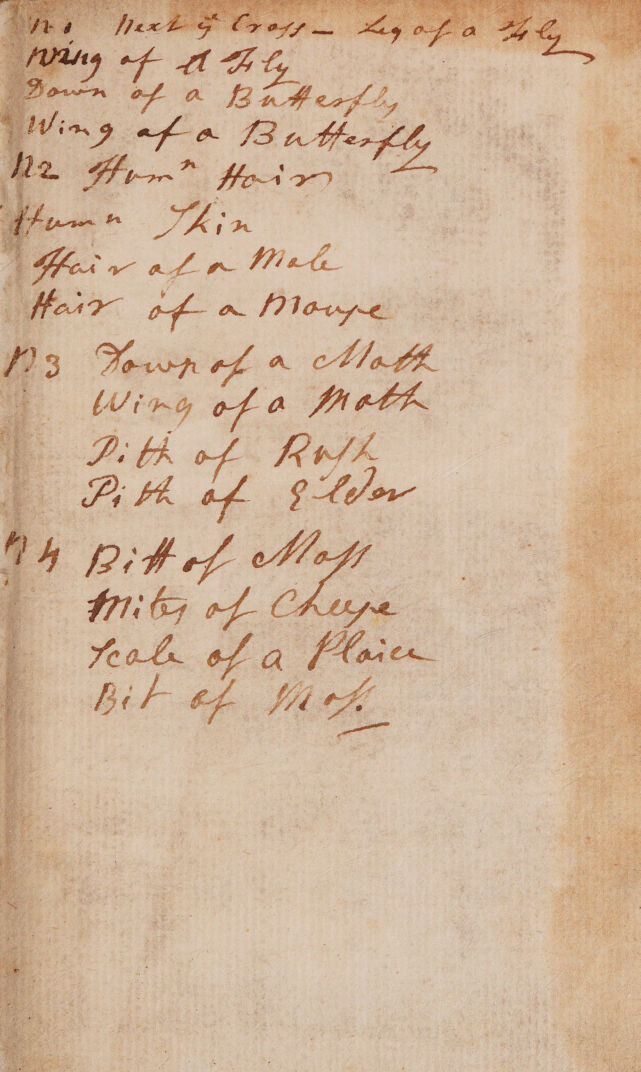 N 1 Next yͤ Cross – Leg of a Fly
Wing of a Fly
Down of a Butterfly
Wing of a Butterfly
N2 Humⁿ Hair
Humⁿ Skin
Hair of a Mole
Hair of a Mouse
N3 Down of a Moth
Wing of a Moth
Pith of Rush
Pith of Elder
N 4 Bitt of Moss
Mites of Cheese
Scale of a Plaice
Bit of Moss.